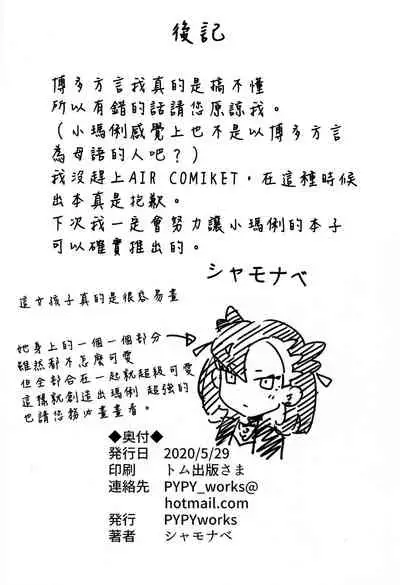 後記
博多方言我真的是搞不懂
所以有錯的話請您原諒我。
(小瑪俐感覺上也不是以博多方言
為母語的人吧？)
我沒趕上AIR COMIKET，在這種時候
出本真是抱歉。
下次我一定會努力讓小瑪俐的本子
可以確實推出的。
シャモナベ
這女孩子真的是很容易畫
她身上的一個一個部分
雖然都不怎麼可愛
但全部合在一起就超級可愛
這樣就創造出瑪俐 超強的
也請您務必畫畫看。
◆奥付◆
発行日 2020/5/29
印刷 トム出版さま
連絡先 PYPY_works@
hotmail.com
発行 PYPYworks
著者 シャモナベ